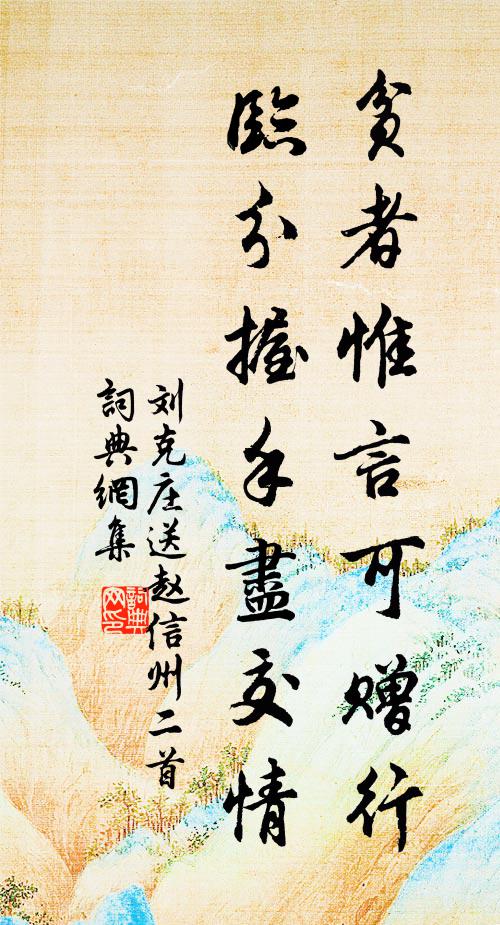 贫者惟言可赠行
臨分握手盡交情
刘克庄送赵信州二首
詞典網集
詞典网印